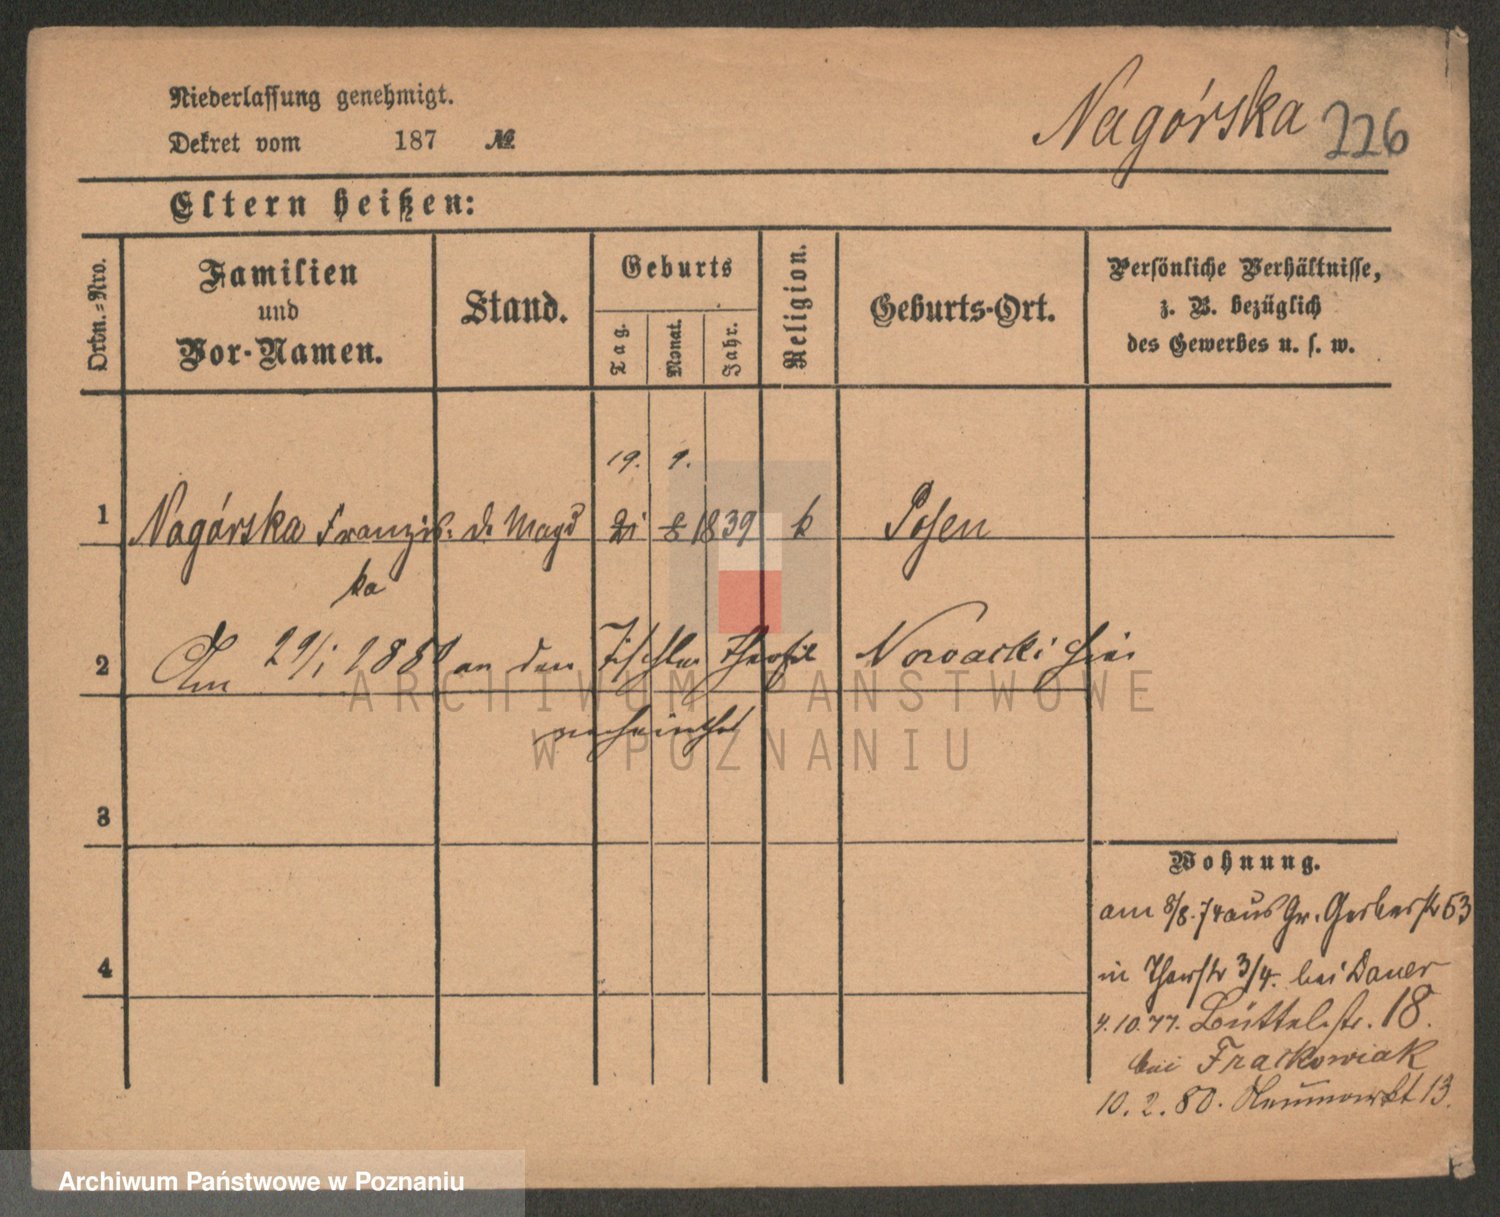 Niederlassung genehmigt.
Nagórska 226
Dekret vom 187 №
Eltern heißen:
Ordn.=Nro.
Familien
und
Vor-Namen.
Stand.
Geburts
Tag.
Monat.
Jahr.
Religion.
Geburts-Ort.
Persönliche Verhältnisse,
z. B. bezüglich
des Gewerbes u. s. w.
19. 9.
1 Nagórska Franzis. d. Magd 21 8 1839 k Posen
ka
2 Am 29/1 1880 an den Tischler Theofil Nowacki hier
verheirathet
3
Wohnung.
am 8/8. 74 aus Gr. Gerberstr 53
4
in Thorstr 3/4. bei Dauer
4.10.77. Büttelstr. 18.
bei Frackowiak
10.2.80. Neumarkt 13.
ARCHIWUM PAŃSTWOWE
W POZNANIU
Archiwum Państwowe w Poznaniu